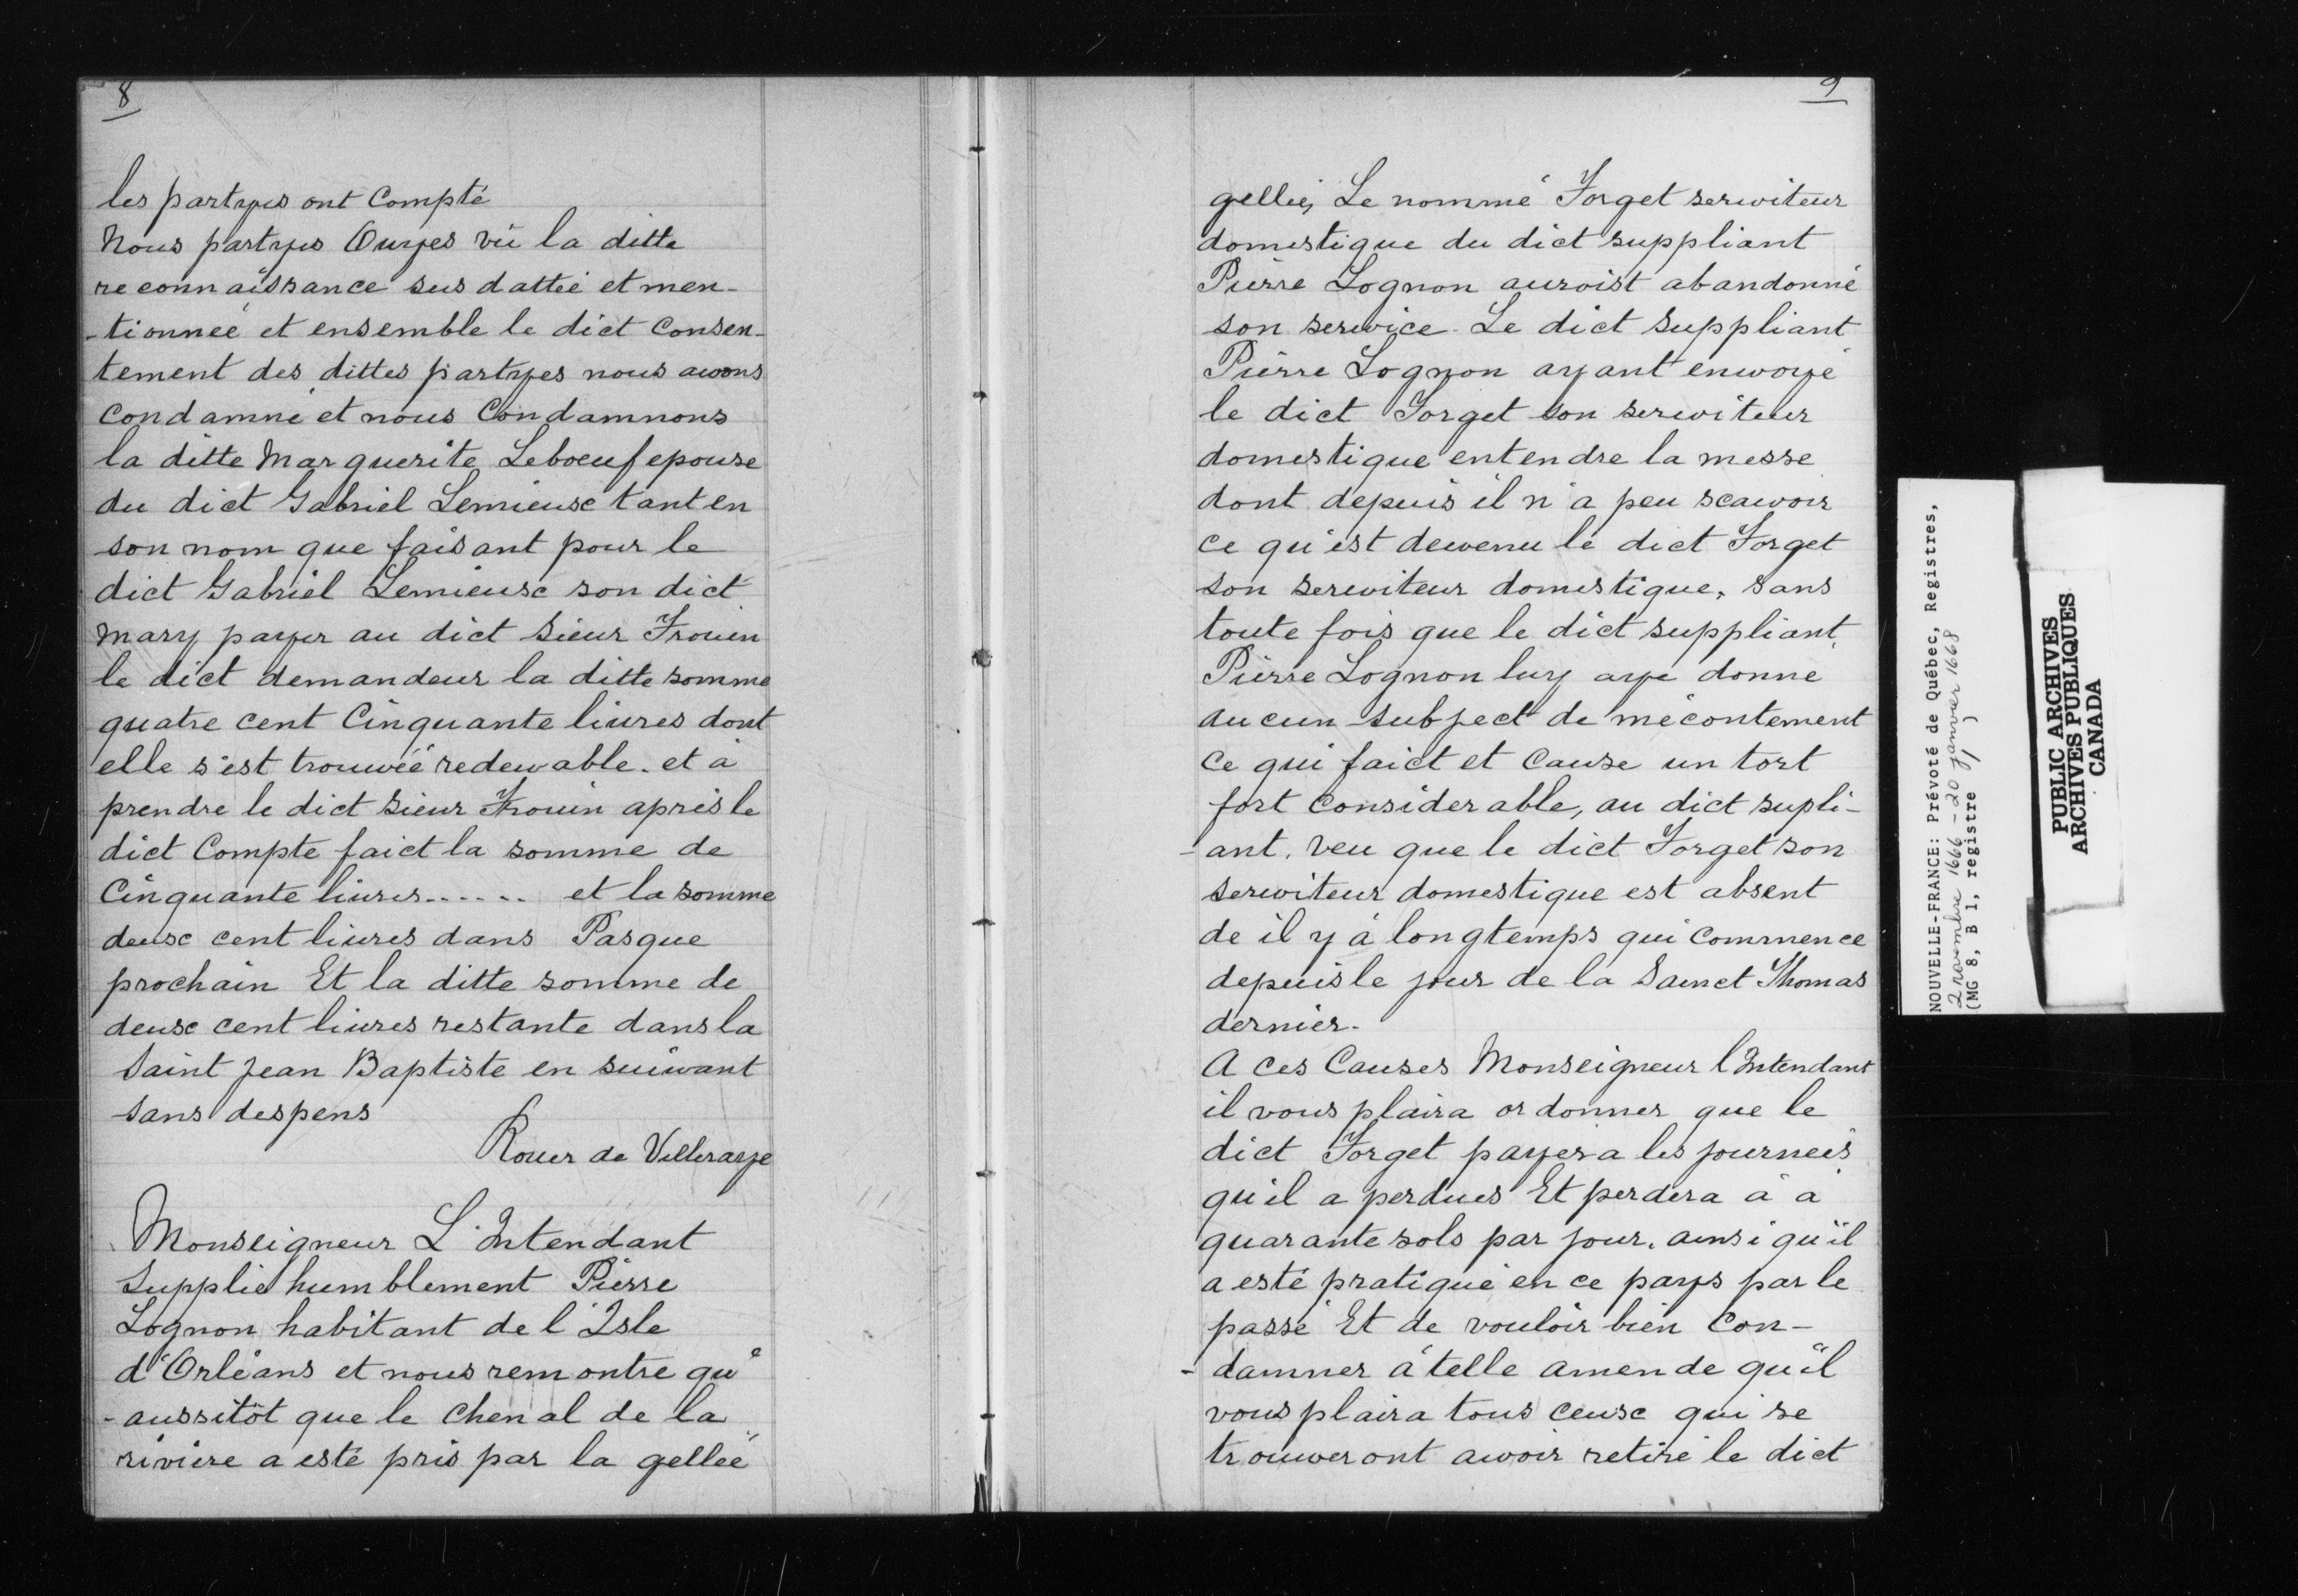 8
les partyes ont Compté
Nous partyes Ouyes vü la ditte
reconnaissance sus dattée et men-
-tionnée et ensemble le dict Consen-
tement des dittes partyes nous awons
Condamné et nous Condamnons
la ditte Marguerite Leboeuf epouse
du dict Gabriel Lemieux tant en
son nom que faisant pour le
dict Gabriel Lemieux son dict
Mary payer au dict Sieur Frouin
le dict demandeur la ditte somme
quatre cent Cinquante liures dont
elle s'est trouwéé redewable. et à
prendre le dict Sieur Frouin aprés le
dict Compte faict la somme de
Cinquante liures...... et la somme
deux cent liures dans Pasque
prochain Et la ditte somme de
deux cent liures restante dans la
Saint Jean Baptiste en suiwant
Sans despens
Rouer de Villeraye
Monseigneur L'Intendant
Supplie humblement Piérre
Lognon habitant de l'Isle
d'Orléans et nous remontre qu'
-aussitôt que le Chenal de la
riviére a esté pris par la gellée
9
gellée, Le nommé Forget serwiteur
domestique du dict suppliant
Piérre Lognon auroist abandonné
son serwice. Le dict Suppliant
Piérre Lognon ayant enwoyé
le dict Forget son serwiteur
domestique entendre la messe
dont depuis il n'a peu scawoir
ce qu'est dewenu le dict Forget
son serwiteur domestique, sans
toute fois que le dict suppliant,
Piérre Lognon luy aye donne
aucun subject de mécontement
Ce qui faict et Cause un tort
fort Considerable, au dict supli-
-ant. Veu que le dict Forget son
serwiteur domestique est absent
de il y à longtemps qui Commence
depuis le jour de la Sainct Thomas
dernier.
A ces Causes Monseigneur l'Intendant
il vous plaira ordonner que le
dict Forget payera les journeés
qu'il a perdues Et perdera à à
quarante sols par jour. ainsi qu'il
a esté pratiqué en ce pays par le
passé Et de vouloir bien Con-
-damner à telle amende qu'il
vous plaira tous ceux qui se
trouweront awoir retiré le dict
NOUVELLE-FRANCE: Prévoté de Québec, Registres,
2 novembre 1666 - 20 janvier 1668
(MG 8, B 1, registre 1)
PUBLIC ARCHIVES
ARCHIVES PUBLIQUES
CANADA